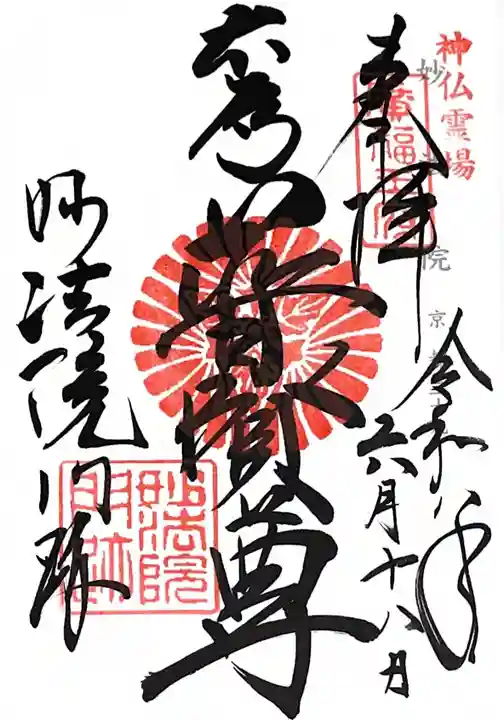 神仏霊場
妙法院
京都
奉拝
令和八年
六月十八日
普賢尊
妙法院門跡
妙法院
門跡